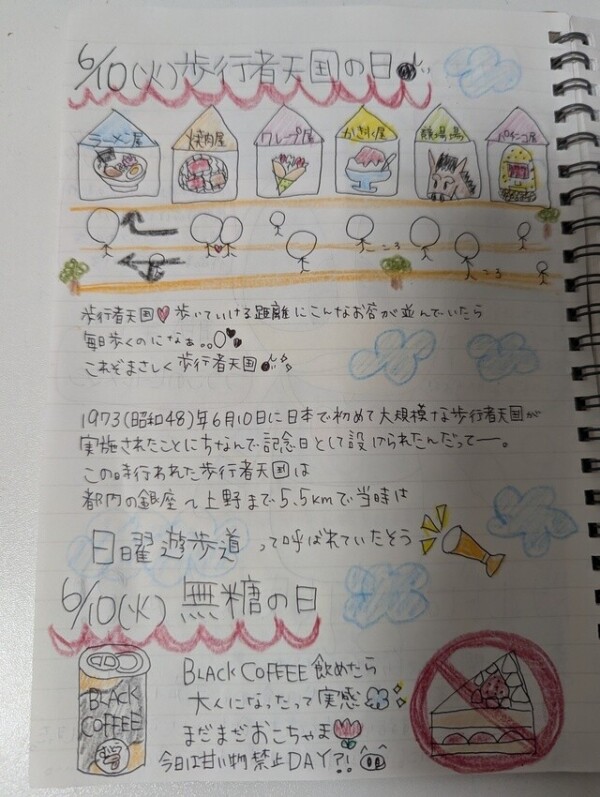 6/10(火)歩行者天国の日
ラーメン屋
焼肉屋
クレープ屋
かき氷屋
競馬場
パチンコ屋
ころ
ころ
歩行者天国 歩いていける距離にこんなお店が並んでいたら
毎日歩くのになぁ。。
これぞまさしく歩行者天国
1973(昭和48)年6月10日に日本で初めて大規模な歩行者天国が
実施されたことにちなんで記念日として設けられたんだってー。
この時行われた歩行者天国は
都内の銀座〜上野まで5.5kmで当時は
日曜遊歩道って呼ばれていたそう
6/10(火)無糖の日
BLACK COFFEE 飲めたら
大人になったって実感
まだまだおこちゃま
今日は甘い物禁止DAY?!
BLACK
COFFEE